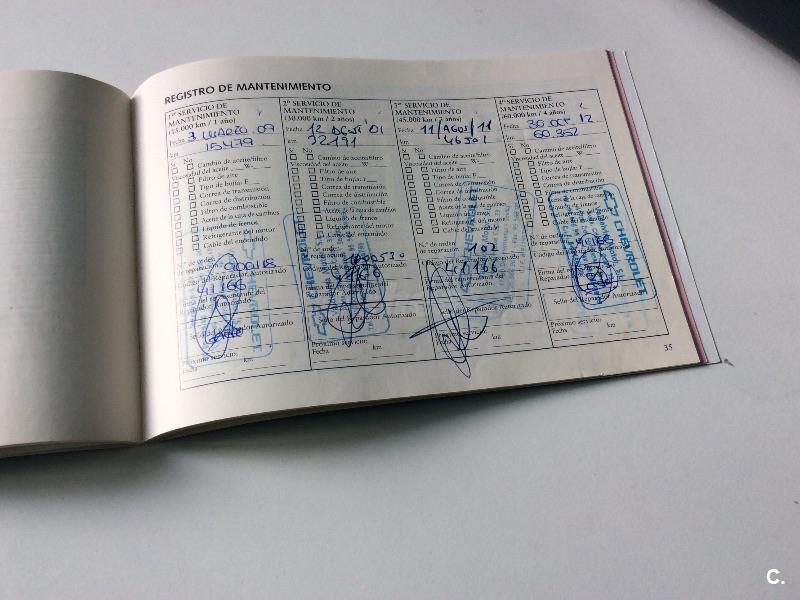 REGISTRO DE MANTENIMIENTO
1er SERVICIO DE
MANTENIMIENTO
(15.000 km / 1 año)
Fecha 3 MARZO 09
km 15479
Sí No
Cambio de aceite/filtro
Viscosidad del aceite W
Filtro de aire
Tipo de bujía: F
Correa de transmisión
Correa de distribución
Filtro de combustible
Aceite de la caja de cambios
Líquido de frenos
Refrigerante del motor
Cable del encendido
N.º de orden
de reparación
Código del Reparador Autorizado
41166
Firma del representante del
Reparador Autorizado
Sello del Reparador Autorizado
CHEVROLET
Próximo servicio:
Fecha km
2º SERVICIO DE
MANTENIMIENTO
(30.000 km / 2 años)
Fecha 12
km 32191
Sí No
Cambio de aceite/filtro
Viscosidad del aceite W
Filtro de aire
Tipo de bujía: F
Correa de transmisión
Correa de distribución
Filtro de combustible
Aceite de la caja de cambios
Líquido de frenos
Refrigerante del motor
Cable del encendido
N.º de orden
de reparación
Código del Reparador Autorizado
Firma del representante del
Reparador Autorizado
Sello del Reparador Autorizado
Próximo servicio:
Fecha km
3er SERVICIO DE
MANTENIMIENTO
(45.000 km / 3 años)
Fecha 11/AGOS/11
km
Sí No
Cambio de aceite/filtro
Viscosidad del aceite W
Filtro de aire
Tipo de bujía: F
Correa de transmisión
Correa de distribución
Filtro de combustible
Aceite de la caja de cambios
Líquido de frenos
Refrigerante del motor
Cable del encendido
N.º de orden
de reparación 102
Código del Reparador Autorizado
41166
Firma del representante del
Reparador Autorizado
Sello del Reparador Autorizado
Próximo servicio:
Fecha km
4º SERVICIO DE
MANTENIMIENTO
(60.000 km / 4 años)
Fecha 30 OCT 12
km 60.352
Sí No
Cambio de aceite/filtro
Viscosidad del aceite W
Filtro de aire
Tipo de bujía: F
Correa de transmisión
Correa de distribución
Filtro de combustible
Aceite de la caja de cambios
Líquido de frenos
Refrigerante del motor
Cable del encendido
N.º de orden
de reparación
Código del Reparador Autorizado
Firma del representante del
Reparador Autorizado
Sello del Reparador Autorizado
CHEVROLET
Próximo servicio:
Fecha km
35
C.